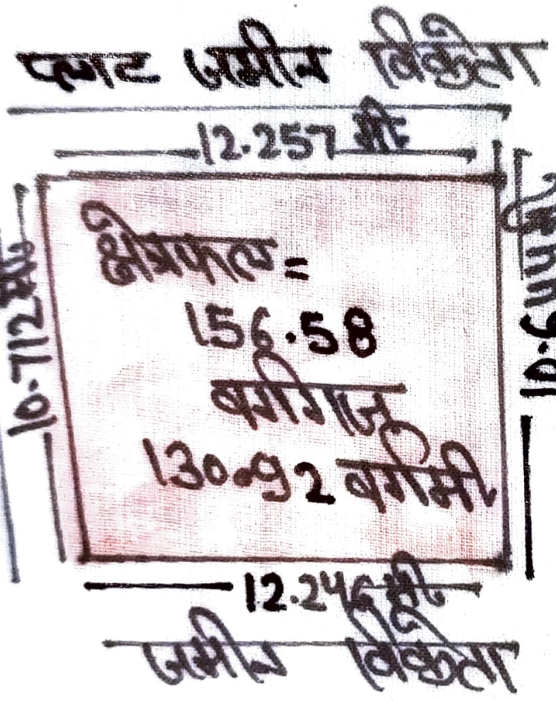 प्लाट जमीन विक्रेता
12.257 मी
10.712 मी
10.644 मी
क्षेत्रफल =
156.58
वर्गगज
130.92 वर्गमी
12.246 मी
जमीन विक्रेता